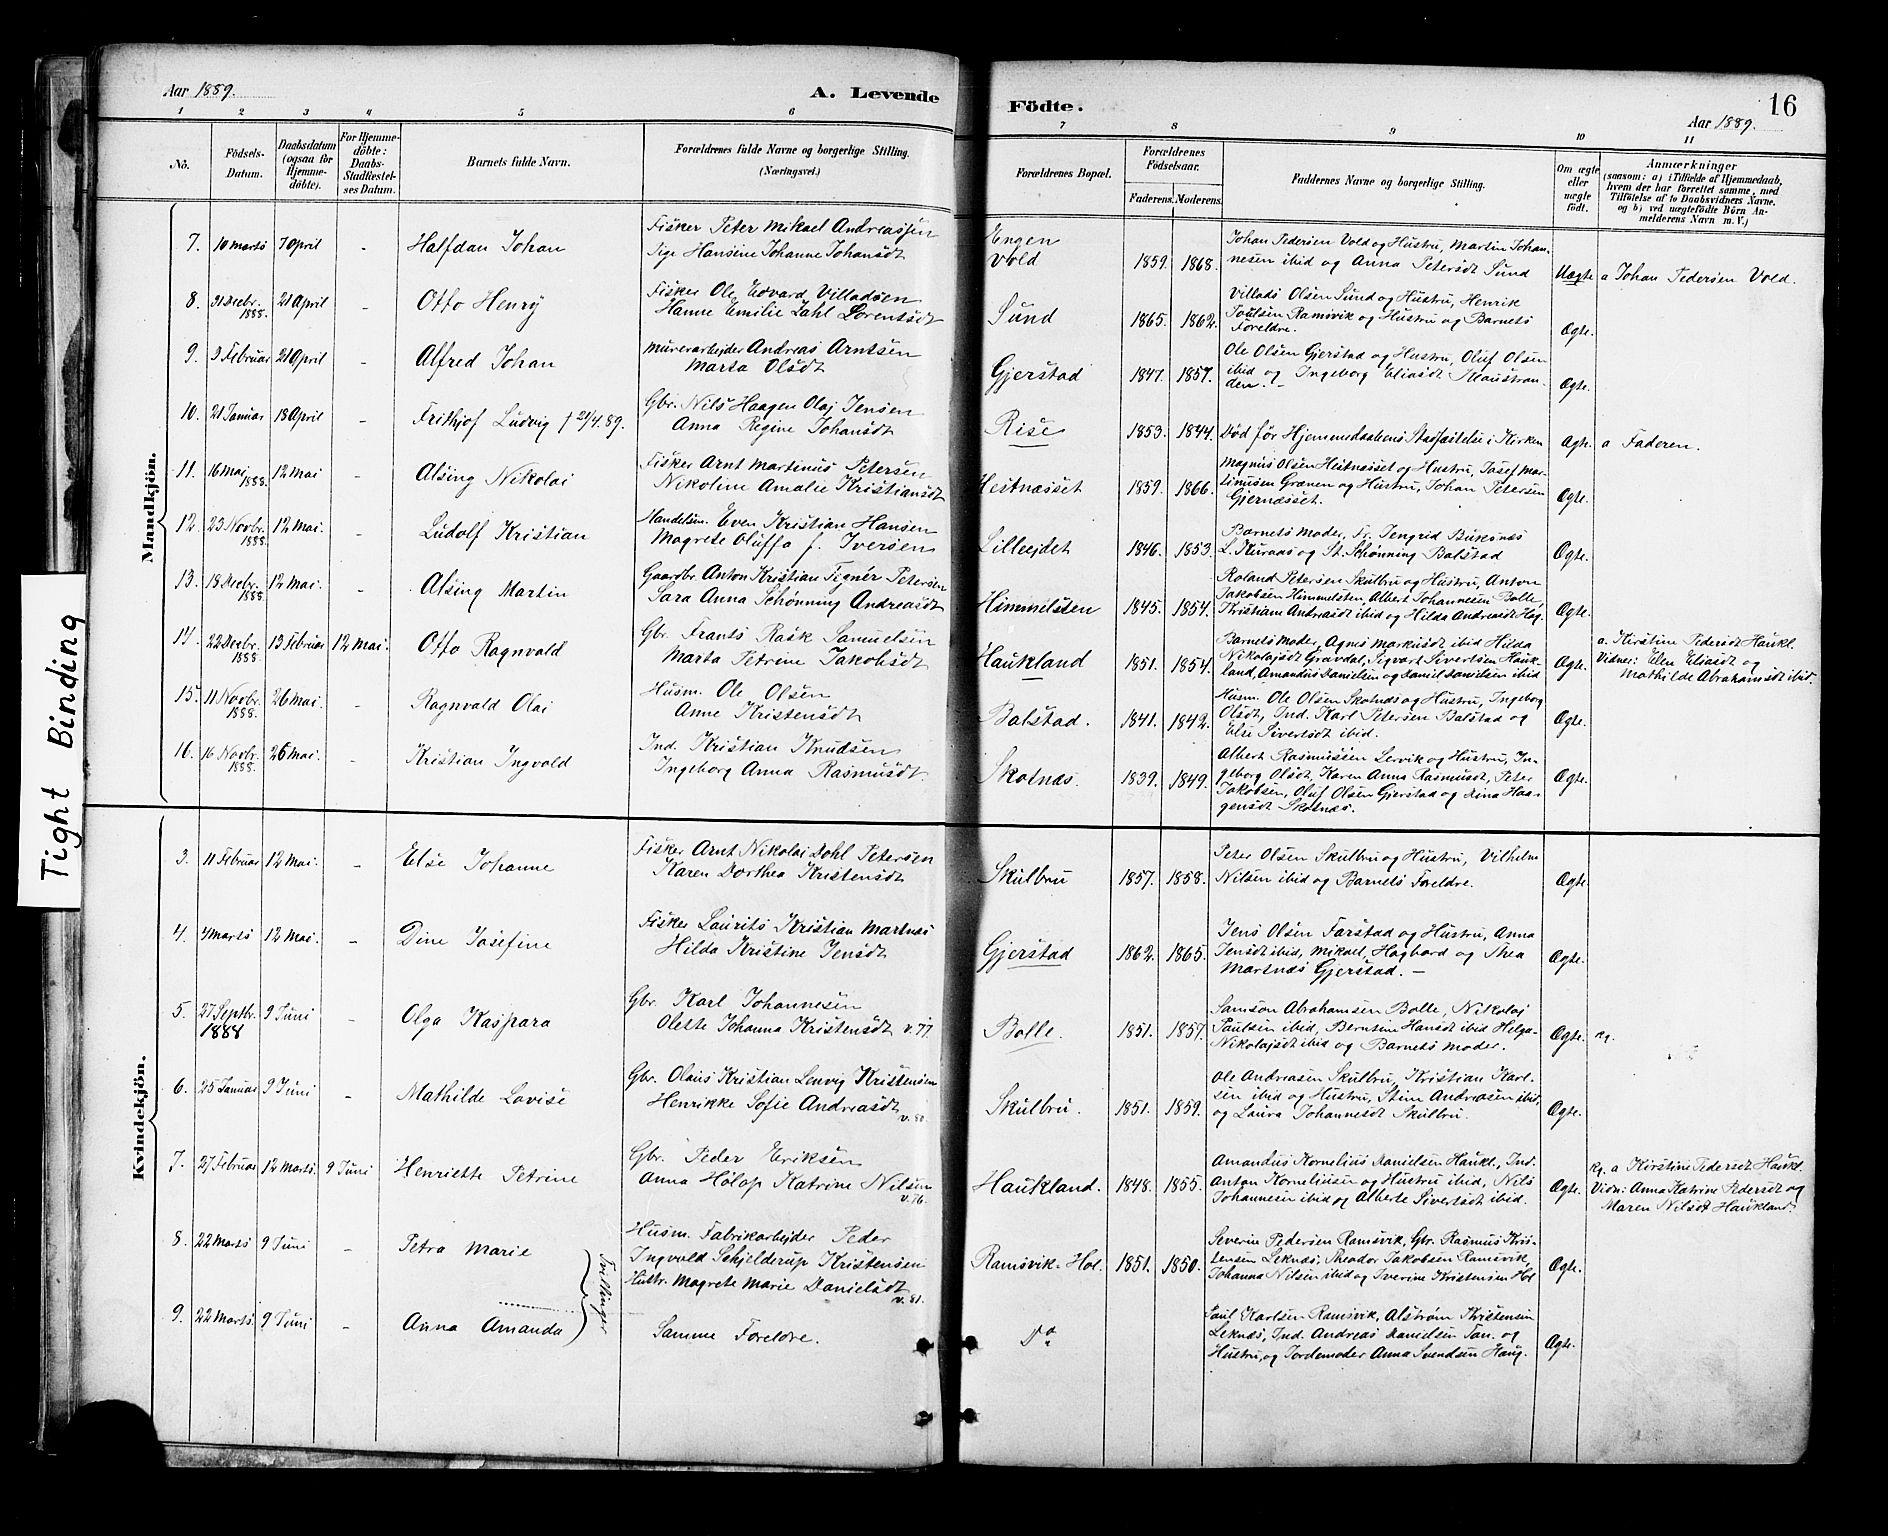 Tight Binding
Aar 1889.
A. Levende
1 2 3 4 5 6
No.
Födsels-Datum.
Daabsdatum (ogsaa for Hjemmedöbte).
For Hjemmedöbte: Daabs-Stadfæstelses Datum.
Barnets fulde Navn.
Forældrenes fulde Navne og borgerlige Stilling.
(Næringsvei.)
Mandkjön.
7. 10 marts 7 April - Halfdan Johan
Fisker Peter Mikael Andreassen
Pige Hansine Johanne Johansdt
8. 31 Decbr. 1888. 21 April - Otto Henry
Fisker Ole Edvard Villadsen
Hanne Emilie Zahl Lorentsdt
9. 3 Februar 21 April - Alfred Johan
Murerarbejder Andreas Arntsen
Marta Olsdt
10. 21 Januar 18 April - Frithjof Ludvig † 21/4.89.
Gbr. Nils Haagen Olaj Jensen
Anna Regine Johansdt
11. 16 Mai 1888. 12 Mai - Alsing Nikolai
Fisker Arnt Martinus Petersen
Nikoline Amalie Kristiansdt
12. 23 Novbr. 1888. 12 Mai. - Ludolf Kristian
Handelsm. Even Kristian Hansen
Magrete Oluffa f. Iversen
13. 18 Decbr. 1888. 12 Mai. - Alsing Martin
Gaardbr. Anton Kristian Tegnér Petersen
Sara Anna Schønning Andreasdt
14. 22 Decbr. 1888. 13 Februar 12 Mai. Otto Ragnvald
Gbr. Frants Rask Samuelsen
Marta Petrine Jakobsdt
15. 11 Novbr. 1888. 26 Mai. - Ragnvald Olai
Husm. Ole Olsen
Anne Kristensdt
16. 16 Novbr. 1888. 26 Mai. - Kristian Ingvald
Ind. Kristian Knudsen
Ingeborg Anna Rasmusdt
Kvindekjön.
3. 11 Februar 12 Mai. - Else Johanne
Fisker Arnt Nikolai Dohl Petersen
Karen Dorthea Kristensdt
4. 4 Marts 12 Mai. - Dine Josefine
Fisker Laurits Kristian Martnæs
Hilda Kristine Jensdt
5. 27 Septbr. 1888 9 Juni - Olga Kaspara
Gbr. Karl Johannesen
Olette Johanna Kristensdt v. 77.
6. 25 Januar 9 Juni - Mathilde Lovise
Gbr. Olaus Kristian Lenvig Kristensen
Henrikke Sofie Andreasdt v. 80.
7. 27 Februar 12 Marts. 9 Juni Henriette Petrine
Gbr. Peder Eriksen
Anna Holap Katrine Nilsen v. 76.
8. 22 Marts 9 Juni - Petra Marie
Husm. Fabrikarbejder Peder
Ingvold Schjelderup Kristensen
Hustr. Magrete Marie Danielsdt v. 81.
Tvillinger
9. 22 Marts. 9 Juni - Anna Amanda
Samme Foreldre.
Födte.
16
Aar 1889.
7 8 9 10 11
Forældrenes Bopæl.
Forældrenes Födselsaar.
Faderens. Moderens.
Faddernes Navne og borgerlige Stilling.
Om ægte eller uægte födt.
Anmærkninger
(saasom: a) i Tilfælde af Hjemmedaab, hvem der har forrettet samme, med Tilföielse af to Daabsvidners Navne, og b) ved uægtefödte Börn Anmelderens Navn m. V.)
Engen
Vold 1859. 1868.
Johan Pedersen Vold og Hustru, Martin Johan-
nesen ibid og Anna Petersdt Sund
Uægte a Johan Pedersen Vold.
Sund 1865. 1862.
Villads Olsen Sund og Hustru, Henrik
Poulsen Ramsvik og Hustru og Barnets
Foreldre.
Ægte.
Gjerstad 1847. 1857.
Ole Olsen Gjerstad og Hustru, Oluf Olsen
ibid og Ingeborg Eliasdt Maustran-
den. -
Ægte.
Rise 1853. 1844.
Død før Hjemmedaabens Stadfæstelse i Kirken
Ægte. a Faderen.
Hestnæsset 1859. 1866.
Magnus Olsen Hestnæsset og Hustru, Josef Mar-
tinusen Grænen og Hustru, Johan Petersen
Gjernæsset.
Ægte.
Lilleejdet 1846. 1853.
Barnets Moder, Fr. Jengrid Buksnæs
L. Kuraas og St. Schønning Balstad
Ægte.
Himmelsten 1845. 1854.
Roland Petersen Skulbru og Hustru, Anton
Jakobsen Himmelsten Albert Johannesen Bolle,
Kristiane Andreasdt ibid og Hilda Andreasdt Hag.
Ægte.
Haukland 1851. 1854.
Barnets Moder, Agnis Markusdt ibid Hilda
Nikolajsdt Gravdal, Sigvart Sivertsen Hauk-
land, Amandus Danielsen og Daniel Danielsen ibid
Ægte.
a. Kirstine Pedersdt Haukl.
Vidner: Elen Eliasdt og
Mathilde Abrahamsdt ibid.
Balstad. 1841. 1842.
Husm. Ole Olsen Skotnæs og Hustru, Ingeborg
Olsdt, Ind. Karl Petersen Balstad og
Else Sivertsdt ibid.
Ægte.
Skotnæs. 1839. 1849.
Albert Rasmussen Lervik og Hustru, In-
geborg Olsdt, Karen Anna Rasmusdt, Peter
Jakobsen, Oluf Olsen Gjerstad og Dina Haa-
gensdt Skotnæs.
Ægte.
Skulbru 1857. 1858.
Peter Olsen Skulbru og Hustru, Vilhelm
Nilsen ibid og Barnets Foreldre.
Ægte.
Gjerstad 1862. 1865.
Jens Olsen Farstad og Hustru, Anna
Jensdt ibid, Mikael, Hagbard og Thea
Martnæs Gjerstad. -
Ægte.
Bolle. 1851. 1857.
Samson Abrahamsen Bolle, Nikolaj
Paulsen ibid, Berntine Hansdt ibid Helga
Nikolajsdt ibid og Barnets Moder.
Ægte. kg.
Skulbru. 1851. 1859.
Ole Andreasen Skulbru, Kristian Karl-
sen ibid og Hustru, Stine Andreasen ibid,
og Laura Johannesdt Skulbru.
Ægte.
Haukland. 1848. 1855.
Amandus Kornelius Danielsen Haukl., Ind.
Anton Korneliusen og Hustru ibid, Nils
Johannesen ibid og Alberte Sivertsdt ibid.
Ægte.
kg. a Kirstine Pedersdt Haukl.
Vidn: Anna Katrine Pedersdt og
Maren Nilsdt Haukland
Ramsvik-Hol. 1851. 1850.
Severin Pedersen Ramsvik, Gbr. Rasmus Kris-
tensen Leknæs, Theodor Jakobsen Ramsvik,
Johanna Nilsen ibid og Iverine Kristensen Hol
Ægte.
Do
Paul Karlsen Ramsvik, Alstrøm Kristensen
Leknæs, Ind. Andreas Danielsen Tan. og
Hustru, og Jordemoder Anna Svendsen Haug.
Ægte.